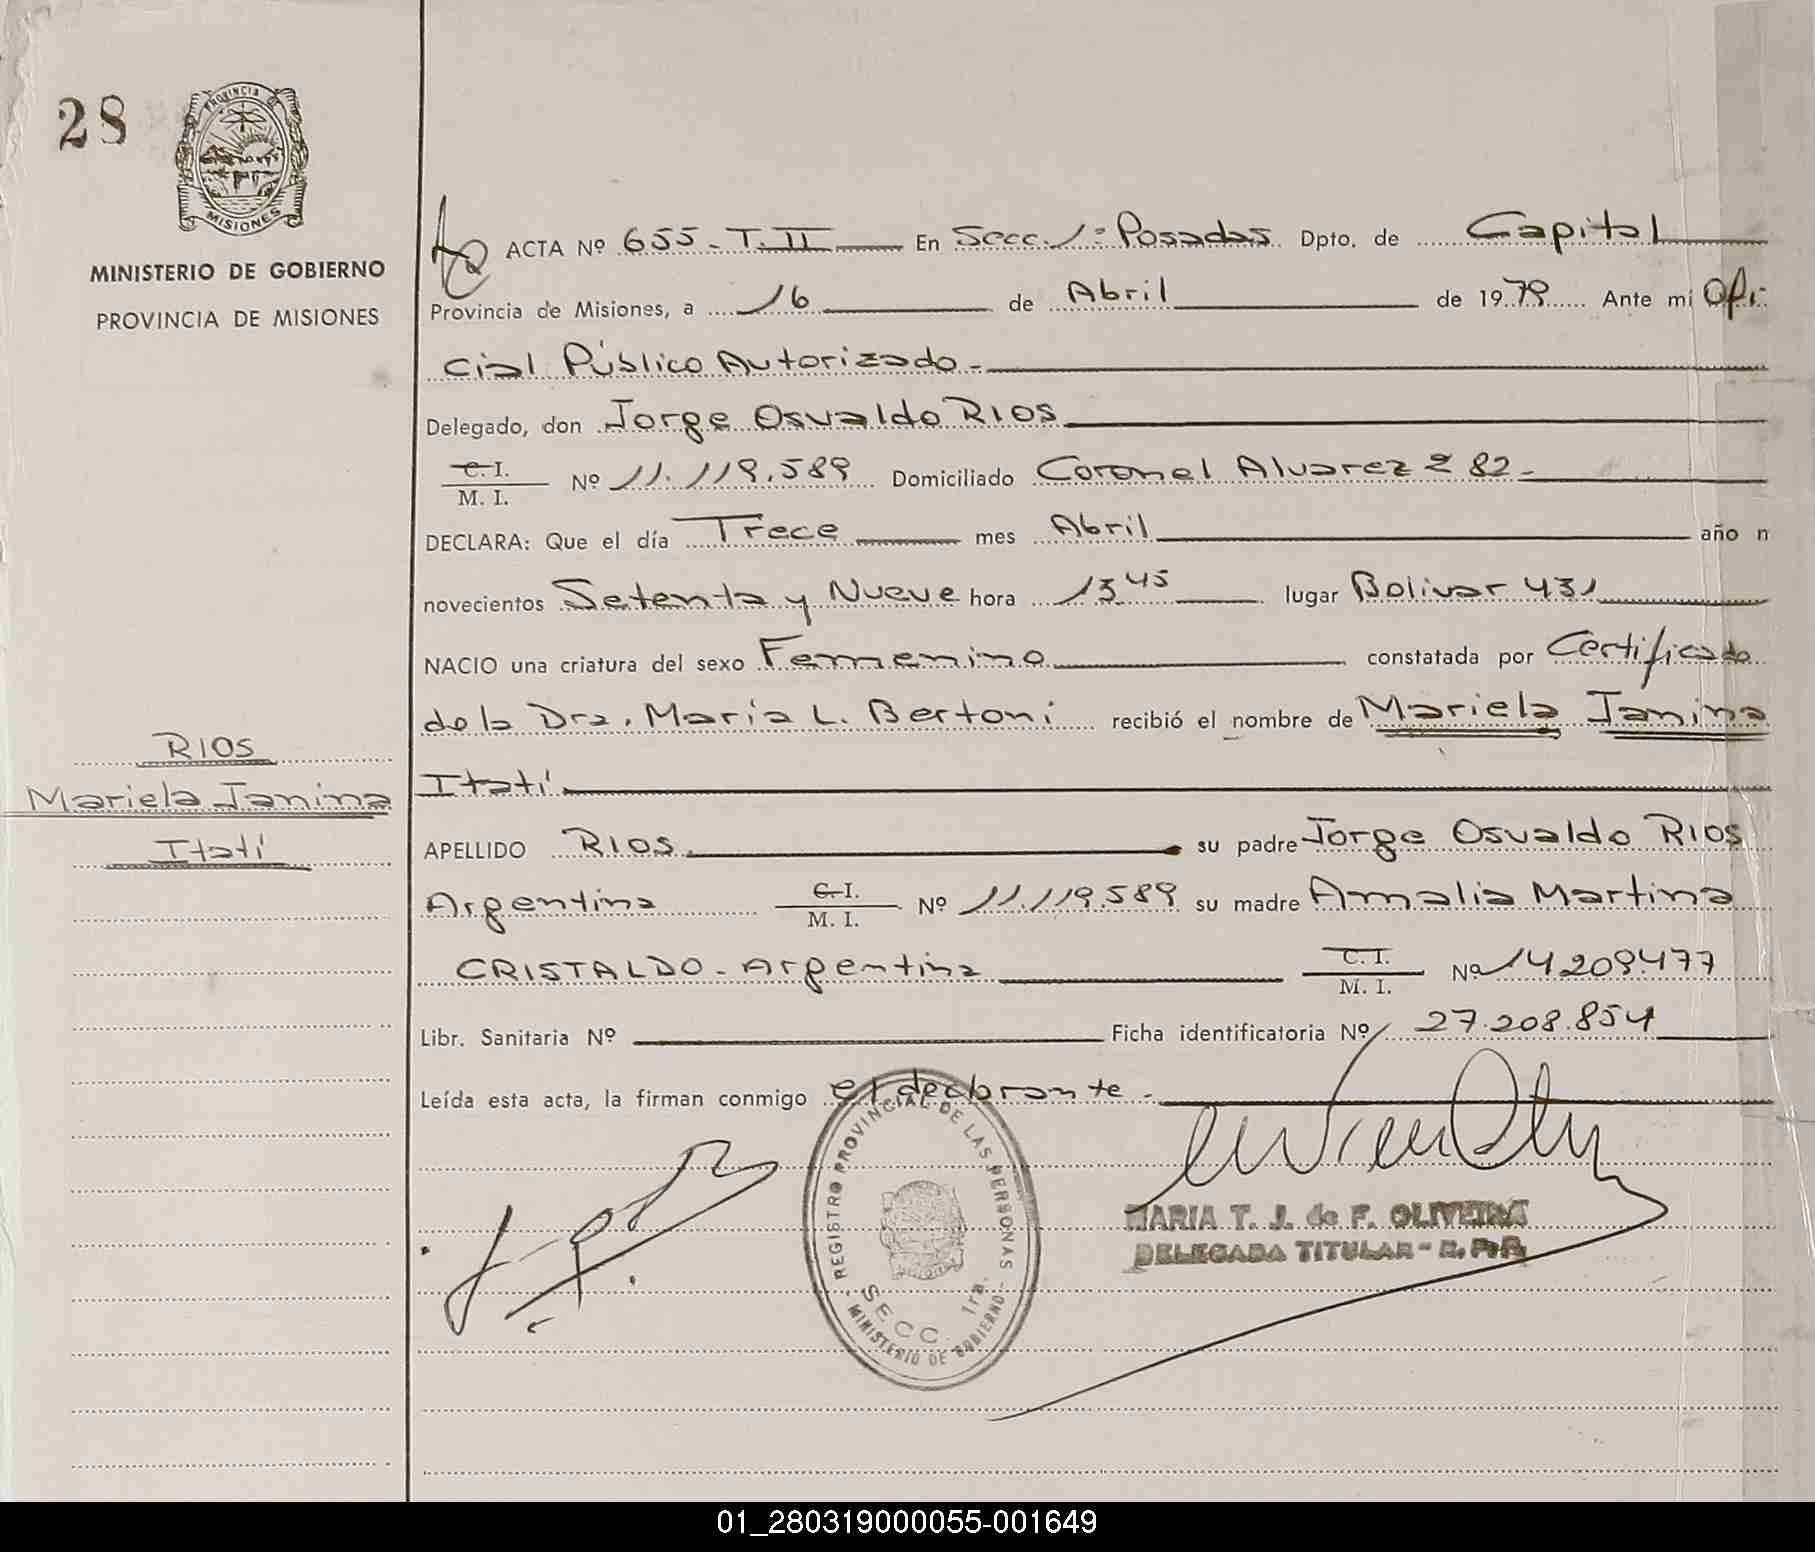 28
PROVINCIA DE
MISIONES
MINISTERIO DE GOBIERNO
PROVINCIA DE MISIONES
RIOS
Mariela Janina
Itatí
ACTA Nº 655 - T. II En Secc. 1ª Posadas Dpto. de Capital
Provincia de Misiones, a 16 de Abril de 1979 Ante mi Ofi-
cial Público Autorizado.-
Delegado, don Jorge Osvaldo RIOS
C. I.
M. I. Nº 11.119.589 Domiciliado Coronel Alvarez 282.-
DECLARA: Que el día Trece mes Abril año n
novecientos Setenta y Nueve hora 13 45 lugar Bolivar 431
NACIO una criatura del sexo Femenino constatada por Certificado
de la Dra. María L. Bertoni recibió el nombre de Mariela Janina
Itatí
APELLIDO RIOS su padre Jorge Osvaldo RIOS
Argentina C. I.
M. I. Nº 11.119.589 su madre Amalia Martina
CRISTALDO - Argentina C. I.
M. I. Nº 14.209.477
Libr. Sanitaria Nº Ficha identificatoria Nº 27.208.854
Leída esta acta, la firman conmigo el declarante.-
REGISTRO PROVINCIAL DE LAS PERSONAS
SECC. 1ra.
MINISTERIO DE GOBIERNO
MARIA T. J. de F. OLIVEIRA
DELEGADA TITULAR - R. P. P.
01_280319000055-001649